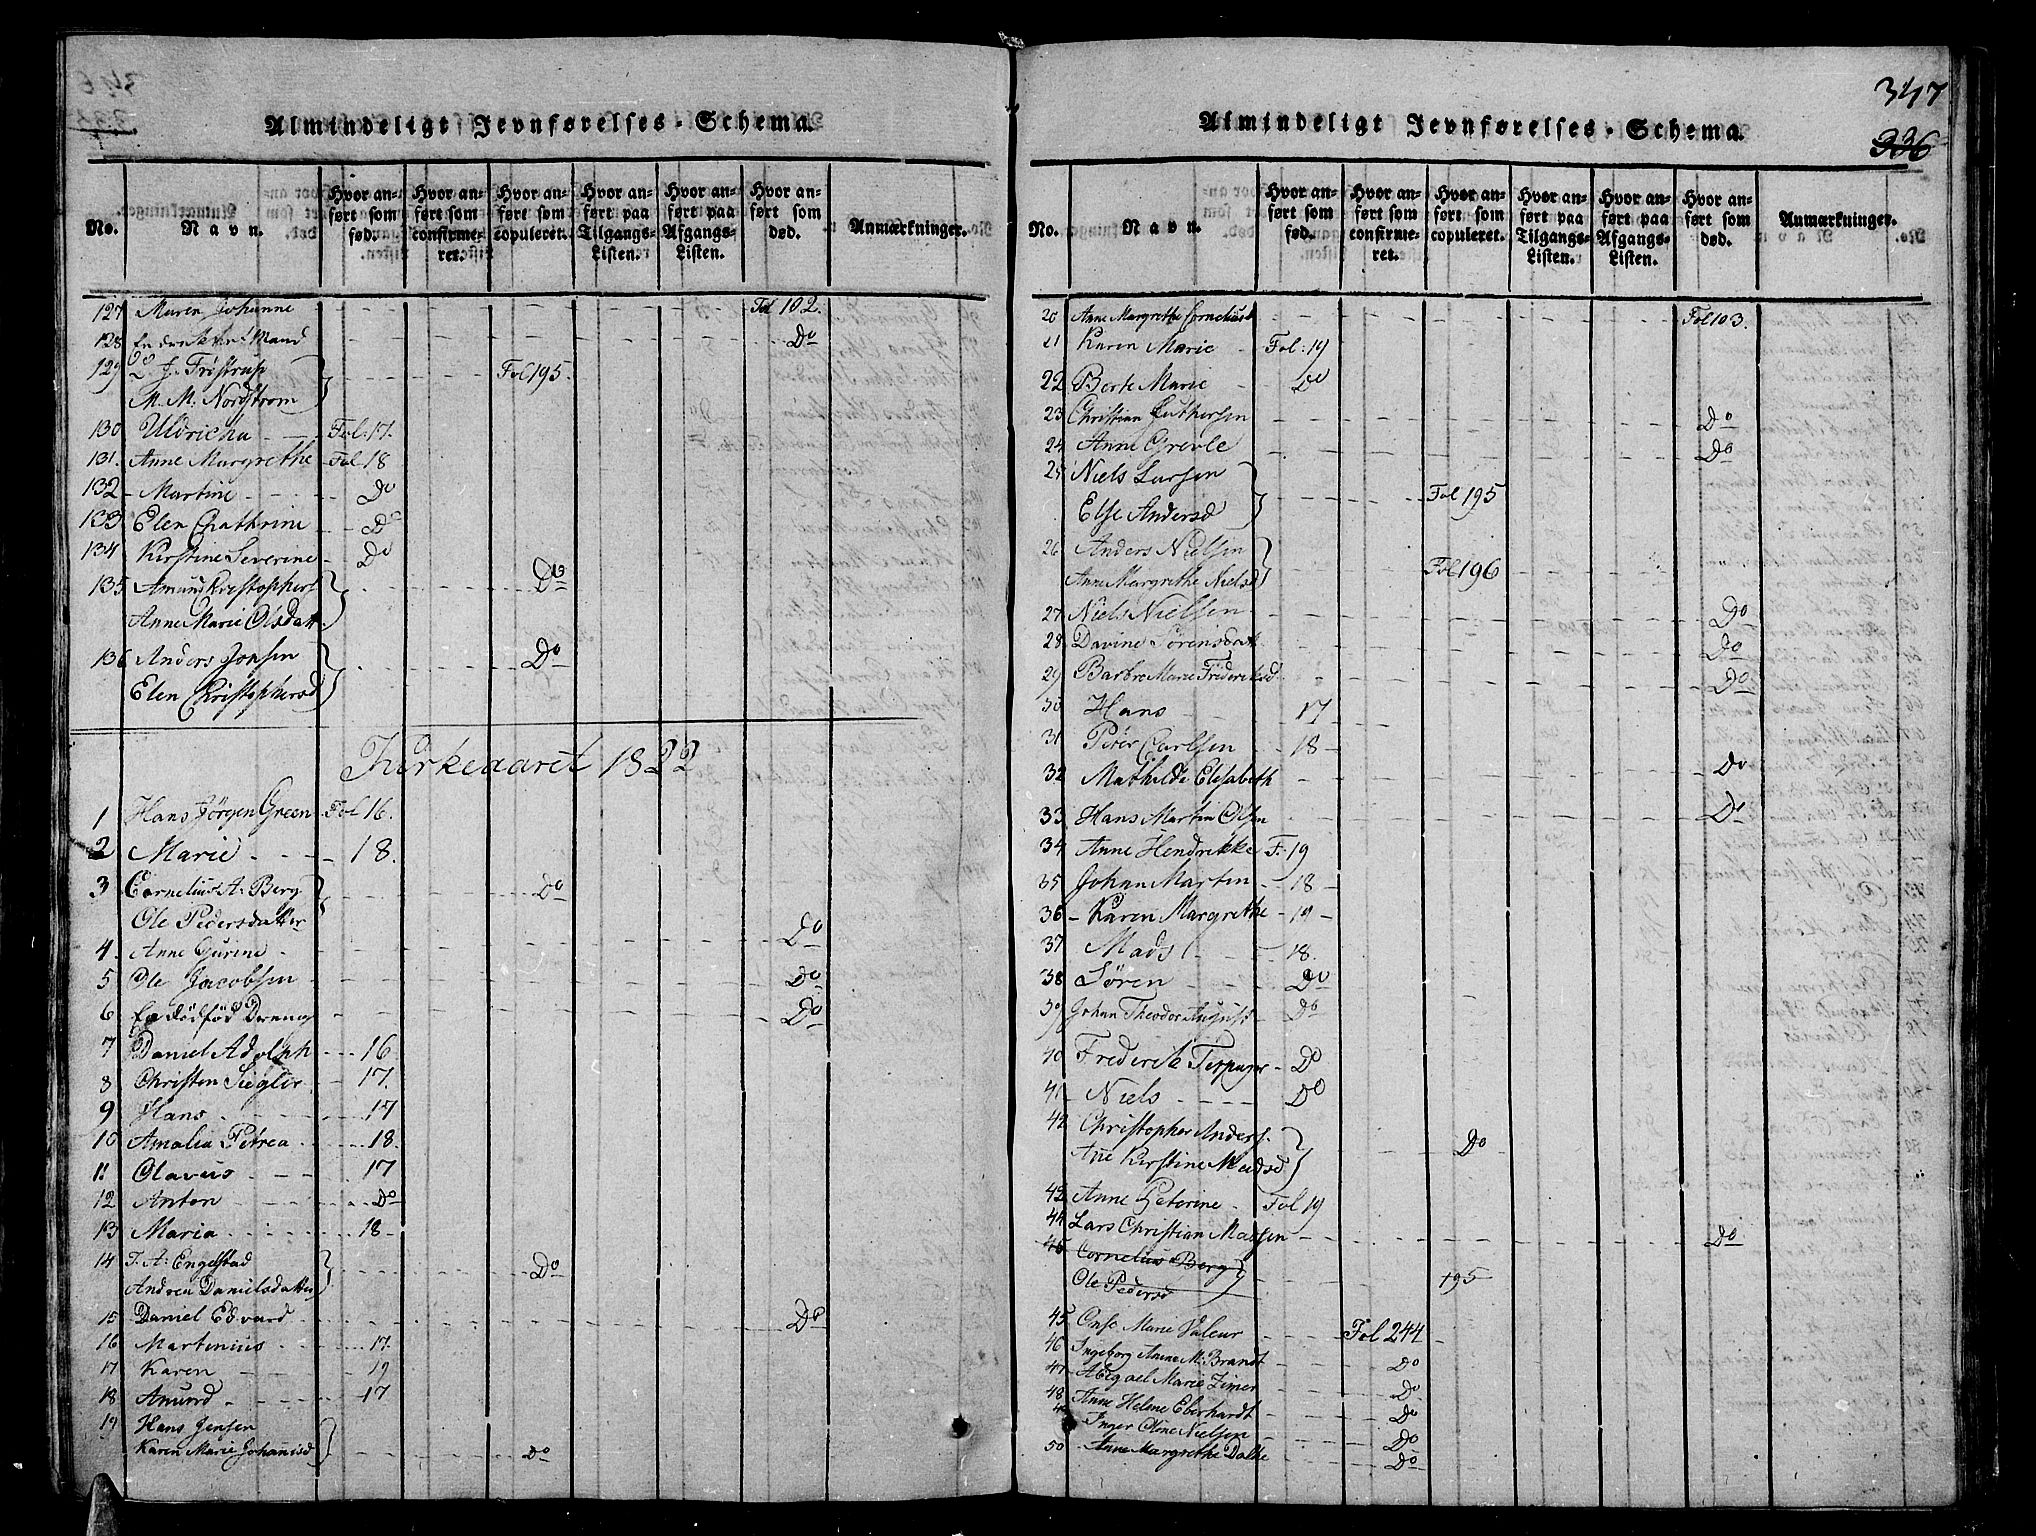 Almindeligt Jevnførelses-Schema.
No. Navn. Hvor anført som fød. Hvor anført som confirmeret. Hvor anført som copuleret. Hvor anført paa Tilgangs-Listen. Hvor anført paa Afgangs-Listen. Hvor anført som død. Anmærkninger.
127 Maren Johanne Fol 102.
128 En Mand Do
129 Trøstrup Fol 195.
M. M. Nordstrom
130 Uldricha Fol. 17.
131. Anne Margrethe Fol 18
132 Martine Do
133 Elen Chathrine Do
134 Kirstine Severine Do
135 Amund Do
Anne Marie Olsdatt
136 Anders Jonsen Do
Elen Christophersd
Kirkeaaret 1822
1 Hans Jörgen Green Fol 16.
2 Marie 18.
3 Cornelius A. Berg Do
Ole Pedersdatter
4. Anne Gurine Do
5 Ole Jacobsen Do
6 En dödföd Dreng Do
7 Daniel Adolph 16
8 Christen Siegler 17.
9 Hans 17
10 Amalia Petrea 18.
11 Olavus 17
12 Anton Do
13 Maria 18
14 T. A. Engelstad Do
Andrea Danielsdatter
15 Daniel Edvard Do
16 Martinius 17.
17 Karen 19
18 Amund 17
19 Hans Jensen Do
Karen Marie Johannisd
347
336
Almindeligt Jevnførelses-Schema.
No. Navn. Hvor anført som fød. Hvor anført som confirmeret. Hvor anført som copuleret. Hvor anført paa Tilgangs-Listen. Hvor anført paa Afgangs-Listen. Hvor anført som død. Anmærkninger.
20 Anne Margrethe Corneliusd Fol 103.
21 Karen Marie Fol: 19
22 Berte Marie Do
23 Christian Luthersen Do
24 Anne Grevle Do
25 Niels Larsen Fol 195
Else Andersd
26 Anders Nielsen Fol 196
Anne Margrethe Nielsd
27 Niels Nielsen Do
28 Davine Sörensdatt Do
29 Barbre Marie Frideriksd Do
30 Hans 17
31 Peter Carlsen 18
32 Mathilde Elisabeth Do
33 Hans Martin Olsen Do
34 Anne Hendrikke F. 19
35 Johan Martin 18
36 Karen Margrethe 19
37 Mads 18.
38 Sören Do
39 Johan Theodor August Do
40 Frederik Do
41 Niels Do
42 Christopher Anders. Do
Ane Kirstine Madsd
43 Anne Fol 19
44 Lars Christian Madsen Do
45 Cornelius Berg 195
Ole Pedersd
45 Marie Valeur Fol 244
46 Ingeborg Anne M. Brandt Do
47 Abigael Marie Zimer Do
48 Anne Helene Eberhardt Do
Inger Oline Nielsen Do
50 Anne Margrethe Dalke Do